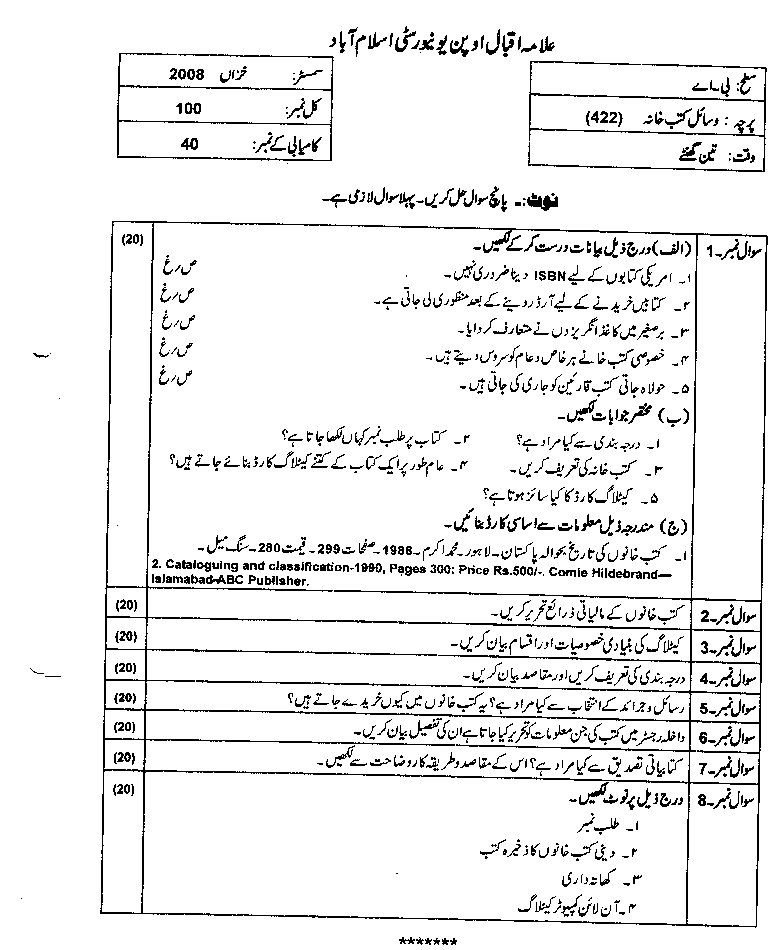 علامہ اقبال اوپن یونیورسٹی اسلام آباد
سطح: بی۔اے
سمسٹر: خزاں 2008
پرچہ: وسائل کتب خانہ (422)
کل نمبر: 100
وقت: تین گھنٹے
کامیابی کے نمبر: 40
نوٹ:۔ پانچ سوال حل کریں۔ پہلا سوال لازمی ہے۔
سوال نمبر۔1 (الف) درج ذیل بیانات درست کر کے لکھیں۔ (20)
۱۔ امریکی کتابوں کے لیے ISBN دینا ضروری نہیں۔ ص/غ
۲۔ کتابیں خریدنے کے لیے آرڈر دینے کے بعد منظوری لی جاتی ہے۔ ص/غ
۳۔ برصغیر میں کاغذ انگریزوں نے متعارف کروایا۔ ص/غ
۴۔ خصوصی کتب خانے ہر خاص و عام کو سروس دیتے ہیں۔ ص/غ
۵۔ حولہ جاتی کتب قارئین کو جاری کی جاتی ہیں۔ ص/غ
(ب) مختصر جوابات لکھیں۔
۱۔ درجہ بندی سے کیا مراد ہے؟ ۲۔ کتاب پر طلب نمبر کہاں لکھا جاتا ہے؟
۳۔ کتب خانہ کی تعریف کریں۔ ۴۔ عام طور پر ایک کتاب کے کتنے کیٹلاگ کارڈ بنائے جاتے ہیں؟
۵۔ کیٹلاگ کارڈ کا کیا سائز ہوتا ہے؟
(ج) مندرجہ ذیل معلومات سے اساسی کارڈ بنائیں۔
۱۔ کتب خانوں کی تاریخ بحوالہ پاکستان۔ لاہور۔ محمد اکرم۔ 1988۔ صفحات 299۔ قیمت 280۔ سنگ میل۔
2. Cataloguing and classification-1990, Pages 300: Price Rs.500/-. Comie Hildebrand—
Islamabad-ABC Publisher.
سوال نمبر۔2 کتب خانوں کے مالیاتی ذرائع تحریر کریں۔ (20)
سوال نمبر۔3 کیٹلاگ کی بنیادی خصوصیات اور اقسام بیان کریں۔ (20)
سوال نمبر۔4 درجہ بندی کی تعریف کریں اور مقاصد بیان کریں۔ (20)
سوال نمبر۔5 رسائل و جرائد کے انتخاب سے کیا مراد ہے؟ یہ کتب خانوں میں کیوں خریدے جاتے ہیں؟ (20)
سوال نمبر۔6 داخلہ رجسٹر میں کتب کی جن معلومات کو تحریر کیا جاتا ہے ان کی تفصیل بیان کریں۔ (20)
سوال نمبر۔7 کتابیاتی تصدیق سے کیا مراد ہے؟ اس کے مقاصد و طریقہ کار وضاحت سے لکھیں۔ (20)
سوال نمبر۔8 درج ذیل پر نوٹ لکھیں۔ (20)
۱۔ طلب نمبر
۲۔ دینی کتب خانوں کا ذخیرہ کتب
۳۔ کھاتہ داری
۴۔ آن لائن کمپیوٹر کیٹلاگ
*******